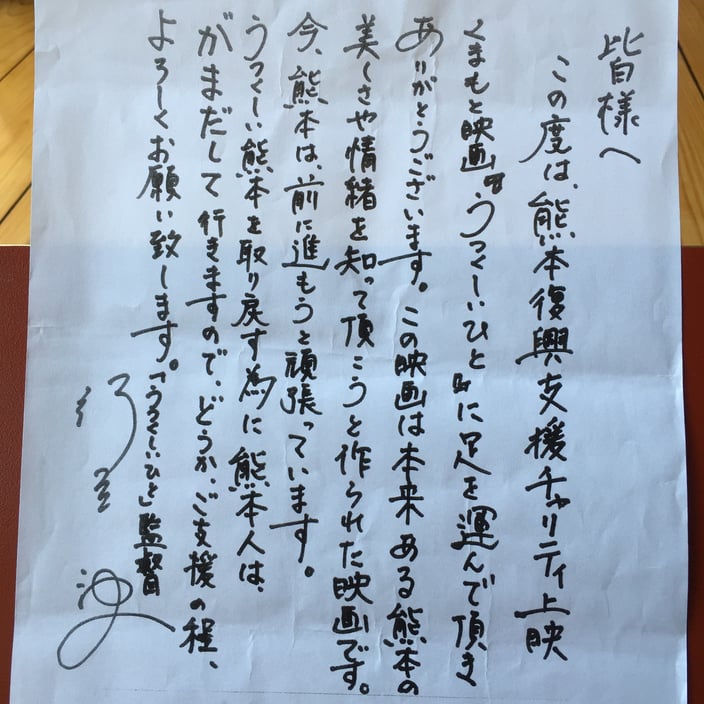 皆様へ
この度は、熊本復興支援チャリティ上映
くまもと映画『うつくしいひと』に足を運んで頂き
ありがとうございます。この映画は本来ある熊本の
美しさや情緒を知って頂こうと作られた映画です。
今、熊本は、前に進もうと頑張っています。
うつくしい熊本を取り戻す為に熊本人は、
がまだして行きますので、どうか、ご支援の程、
よろしくお願い致します。「うつくしいひと」監督
行定 勲